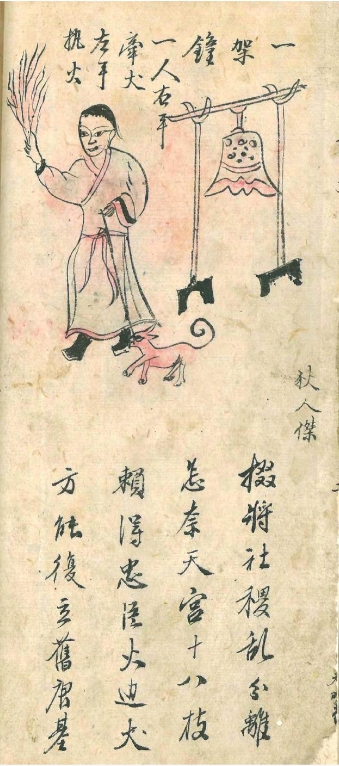 一架鐘
一人右手
牽犬
左手
执火
狄人傑
掇將社稷乱分離
怎奈天宫十八枝
賴淂忠臣火迫犬
方能復立舊唐基